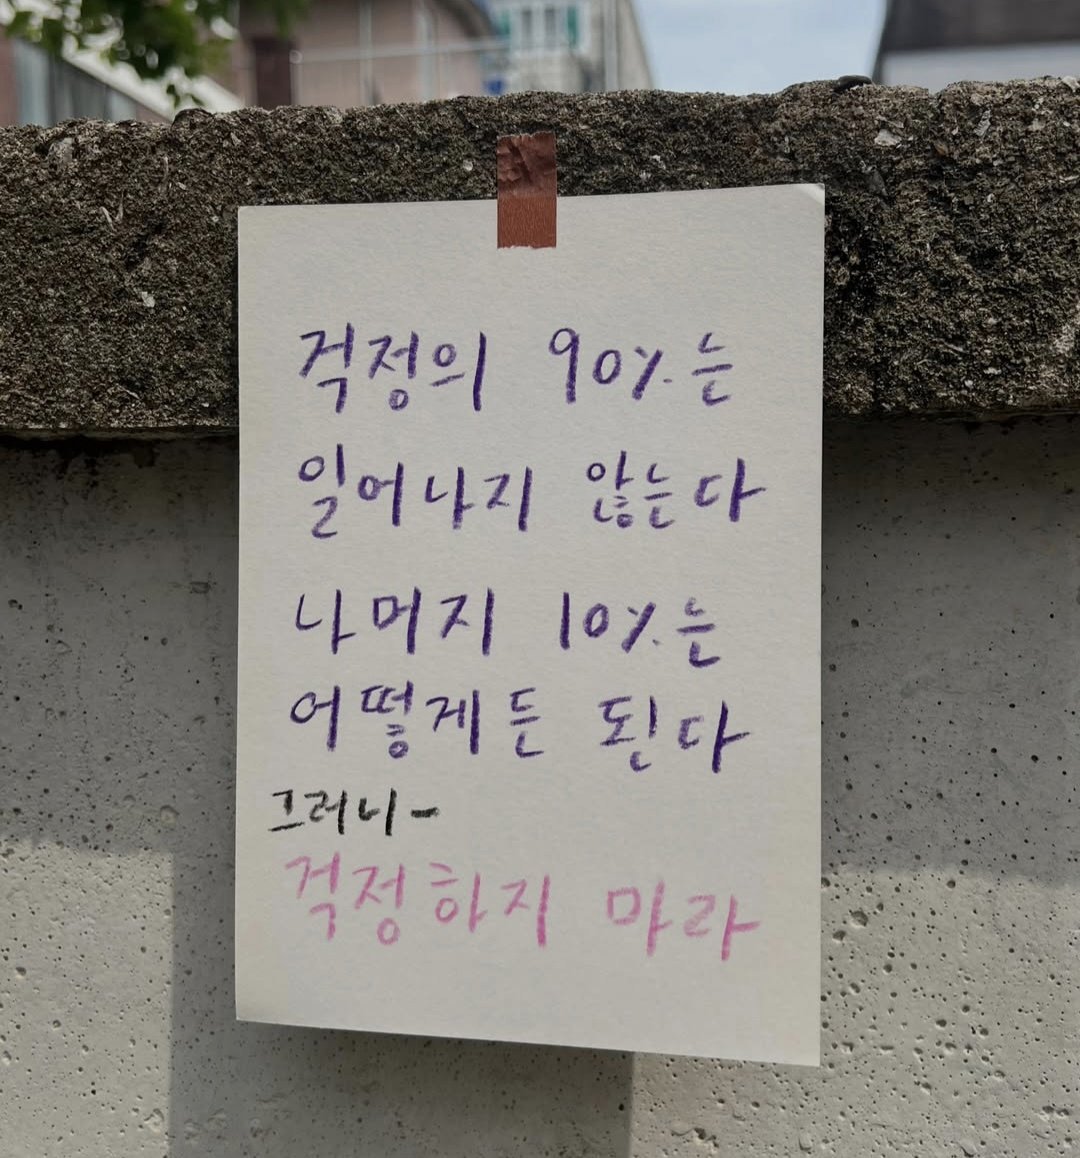 걱정의 90%는
일어나지 않는다
나머지 10%는
어떻게든 된다
그러니-
걱정하지 마라